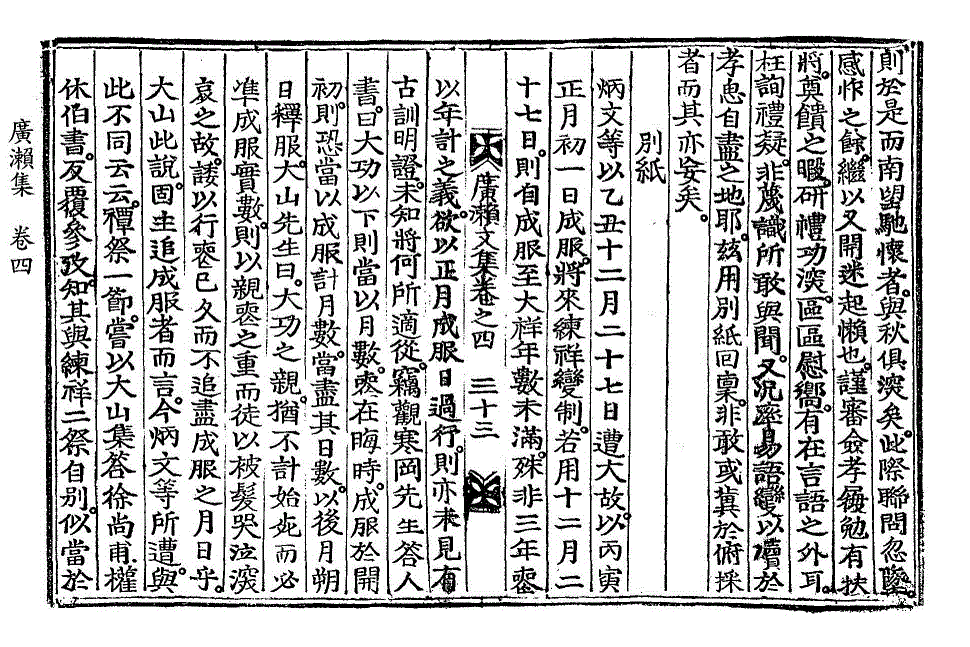 則於是而南望馳懷者與秋俱深矣此際聯問忽墜
感怍之餘繼以又開迷起懶也謹審僉孝餒勉有扶
將奠饋之暇研禮功深區區慰嚮有在言語之外耳
枉詢禮疑非蔑識所敢與聞又況率易語變以瀆於
孝思自盡之地耶玆用別紙回稟非敢或冀於俯採
者而其亦妄矣
別紙
炳文等以乙丑十二月二十七日遭大故以丙寅
正月初一日成服將來練祥變制若用十二月二
十七日則自成服至大祥年數未滿殊非三年喪
廣瀨文集卷之四 三十三
以年計之義欲以正月成服日過行則亦未見有
古訓明證未知將何所適從竊觀寒岡先生答人
書曰大功以下則當以月數喪在晦時成服於開
初則恐當以成服計月數當盡其日數以後月朔
日釋服大山先生曰大功之親猶不計始死而必
準成服實數則以親喪之重而徒以被髮哭泣深
哀之故諉以行喪已久而不追盡成服之月日乎
大山此說固主追成服者而言今炳文等所遭與
此不同云云禫祭一節嘗以大山集答徐尚甫權
休伯書反覆參攷知其與練祥二祭自別似當於
廣瀨集 卷四